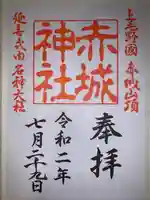 上毛野國 赤城山頂
奉拝
赤城神社
令和二年
七月二十九日
延喜式内 名神大社